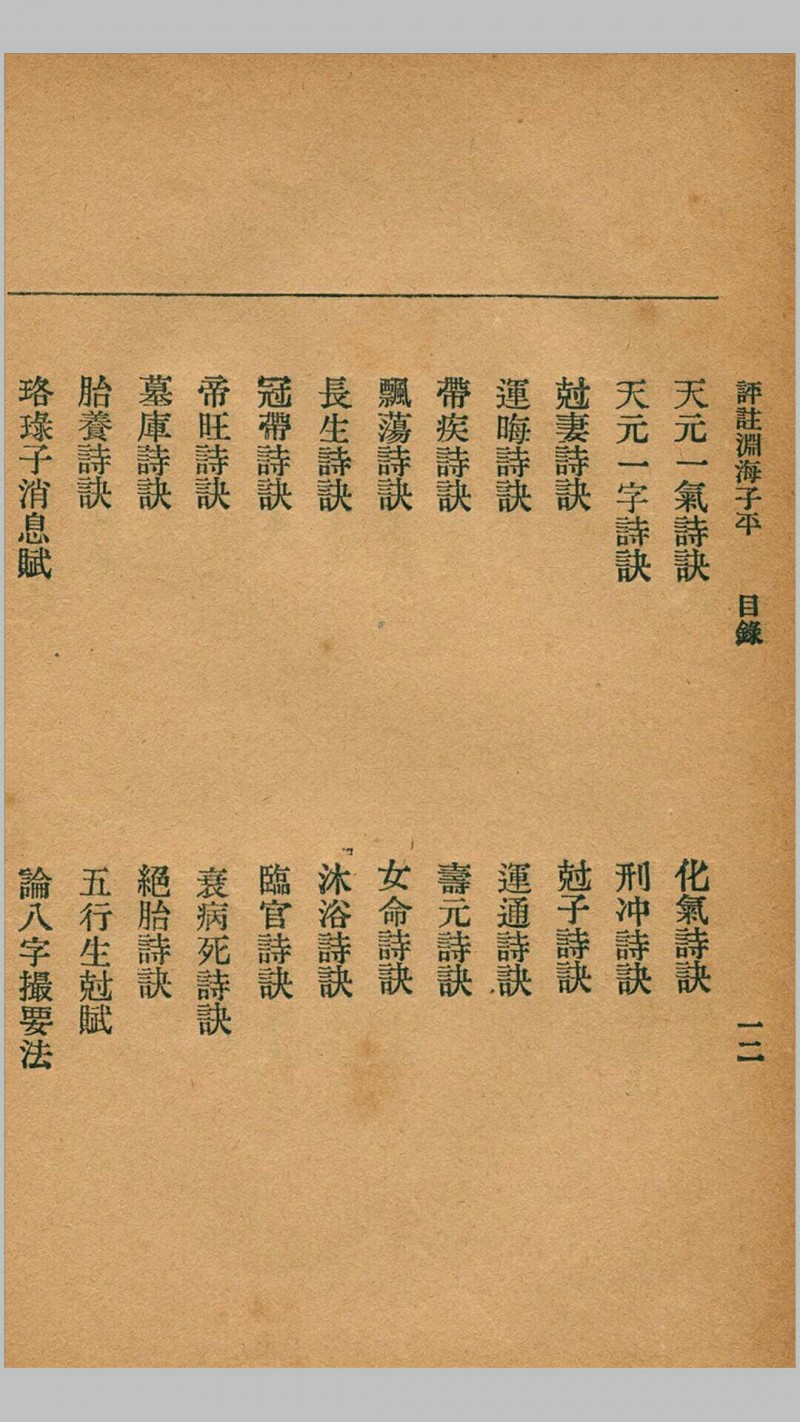 評註淵海子平 目錄 一二
天元一氣詩訣 化氣詩訣
天元一字詩訣 刑冲詩訣
尅妻詩訣 尅子詩訣
運晦詩訣 運通詩訣
帶疾詩訣 壽元詩訣
飄蕩詩訣 女命詩訣
長生詩訣 沐浴詩訣
冠帶詩訣 臨官詩訣
帝旺詩訣 衰病死詩訣
墓庫詩訣 絕胎詩訣
胎養詩訣 五行生尅賦
珞琭子消息賦 論八字撮要法